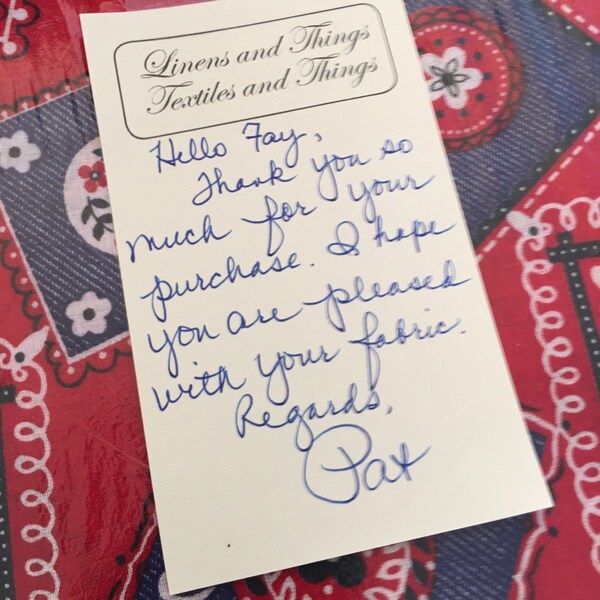 Linens and Things
Textiles and Things
Hello Fay,
Thank you so
much for your
purchase. I hope
you are pleased
with your fabric.
Regards,
Pat